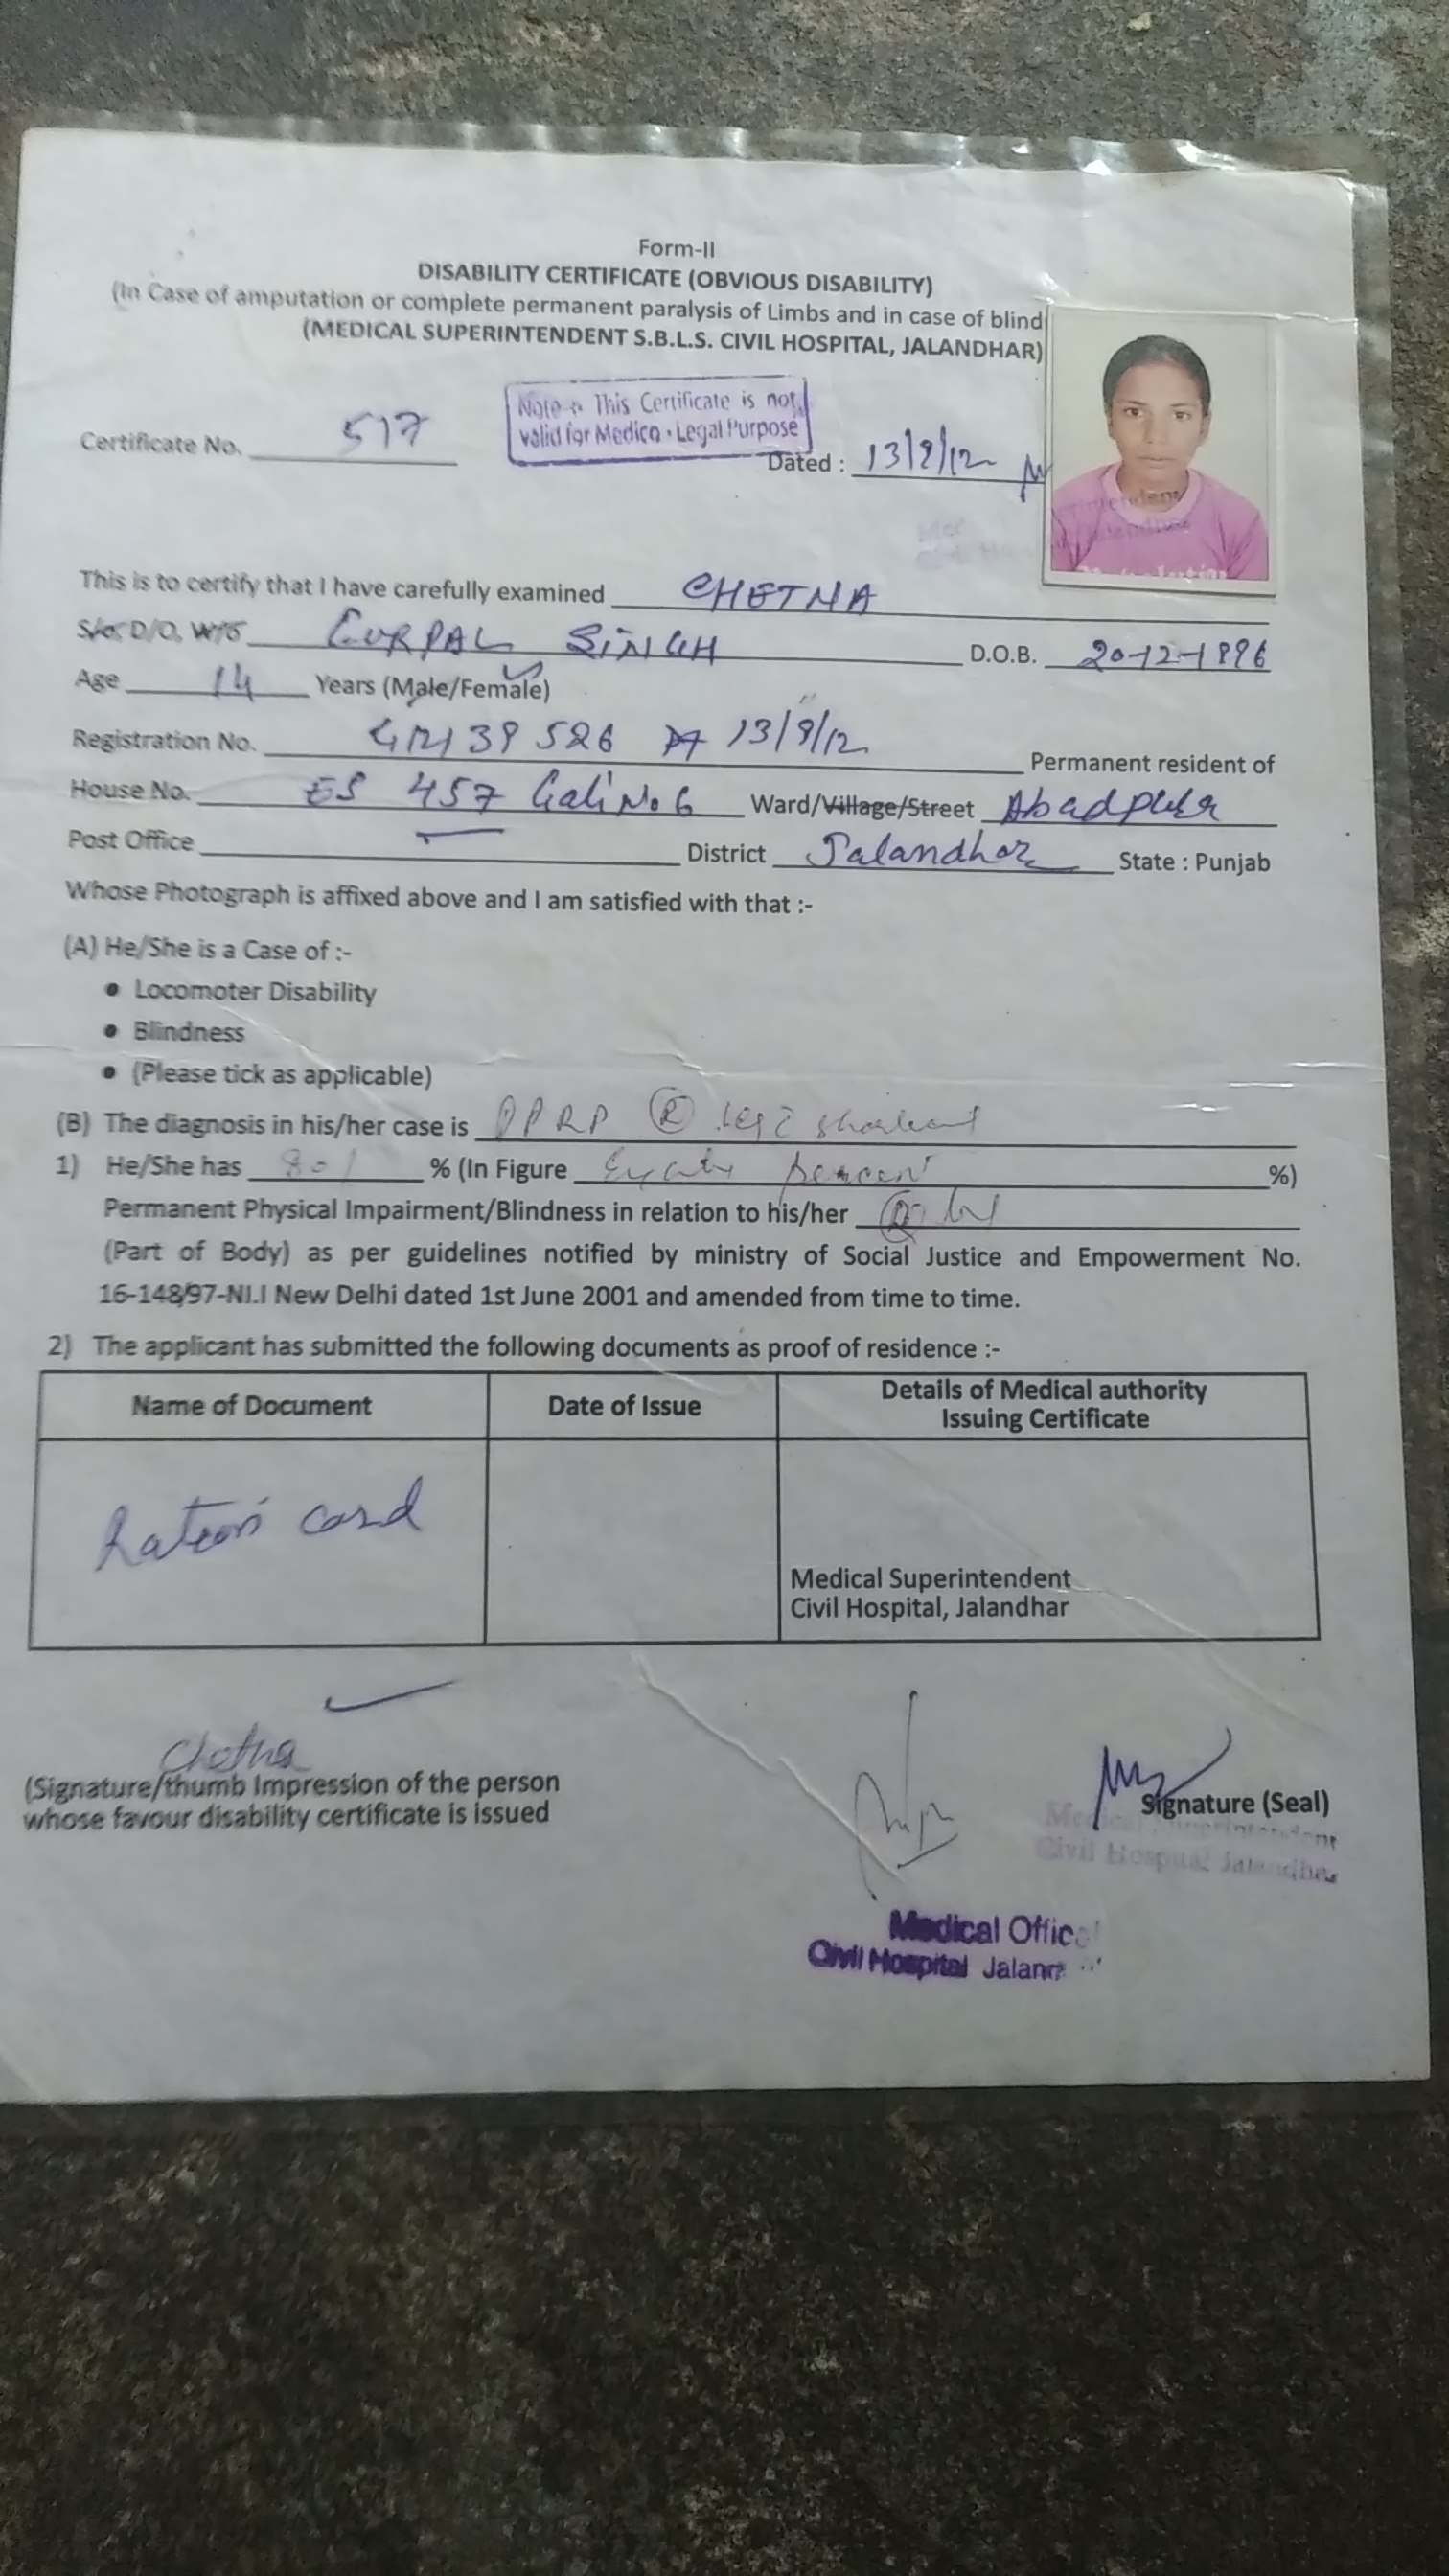 Form-II
DISABILITY CERTIFICATE (OBVIOUS DISABILITY)
(In Case of amputation or complete permanent paralysis of Limbs and in case of blind
(MEDICAL SUPERINTENDENT S.B.L.S. CIVIL HOSPITAL, JALANDHAR)
Note This Certificate is not
valid for Medico - Legal Purpose
Certificate No. 517
Dated : 13/8/12
This is to certify that I have carefully examined CHETNA
S/o, D/O, W/o GURPAL SINGH D.O.B. 20-12-1996
Age 14 Years (Male/Female)
Registration No. 139526 13/8/12 Permanent resident of
House No. 457 Gali No. 6 Ward/Village/Street Abadpura
Post Office District Jalandhar State : Punjab
Whose Photograph is affixed above and I am satisfied with that :-
(A) He/She is a Case of :-
• Locomoter Disability
• Blindness
• (Please tick as applicable)
(B) The diagnosis in his/her case is PPRP (R) leg
1) He/She has 80 % (In Figure Eighty percent %)
Permanent Physical Impairment/Blindness in relation to his/her (R)
(Part of Body) as per guidelines notified by ministry of Social Justice and Empowerment No.
16-148/97-NI.I New Delhi dated 1st June 2001 and amended from time to time.
2) The applicant has submitted the following documents as proof of residence :-
Name of Document Date of Issue Details of Medical authority
Issuing Certificate
Ration card
Medical Superintendent
Civil Hospital, Jalandhar
Chetna
(Signature/thumb Impression of the person
whose favour disability certificate is issued
Signature (Seal)
Medical Superintendent
Civil Hospital Jalandhar
Medical Office
Civil Hospital Jaland